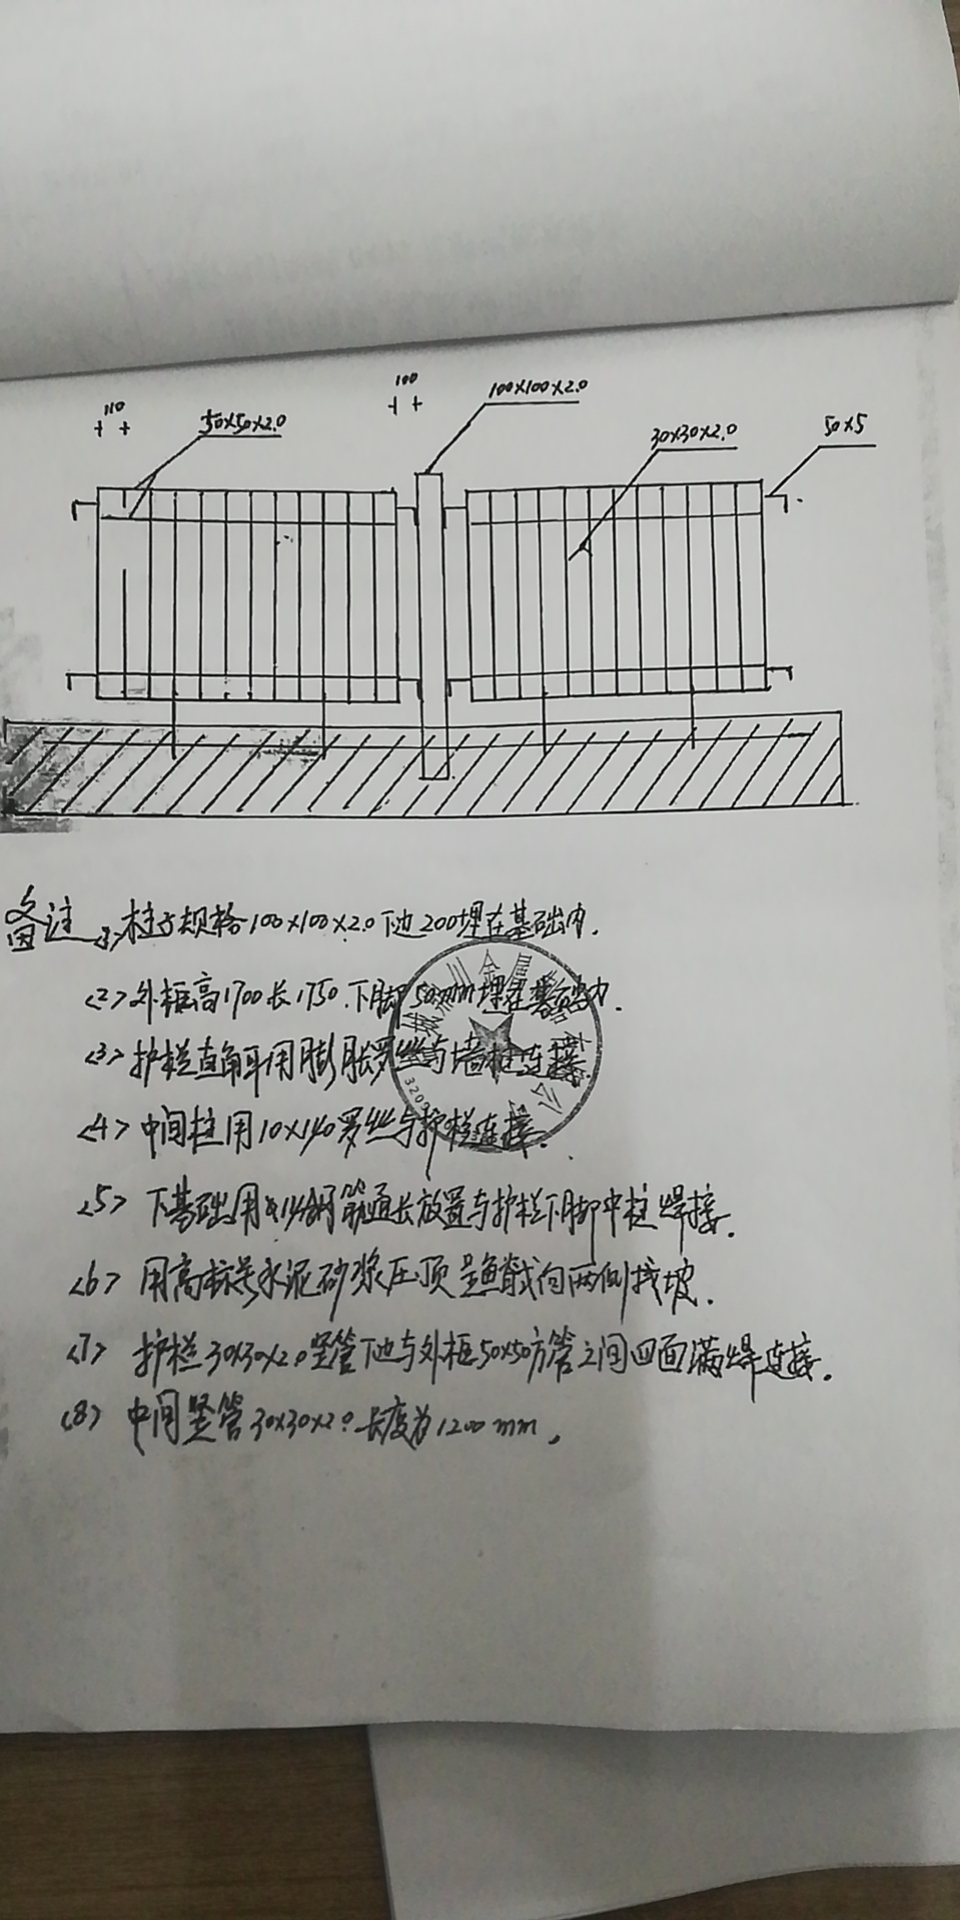 100
110
100×100×2.0
50×50×2.0
30×30×2.0
50×5
备注 柱子规格100×100×2.0下边200埋在基础内.
<2>外框高1700长1750.下脚50mm埋在基础内.
<3>护栏直角耳用膨胀罗丝与墙柱连接
<4>中间柱用10×140罗丝与护栏连接.
<5>下基础用 14钢筋通长放置与护栏下脚中柱焊接.
<6>用高标号水泥砂浆压顶呈鱼背式向两侧找坡.
<7>护栏30×30×2.0竖管 与外框50×50方管之间四面满焊连接.
(8)中间竖管30×30×2.0长度为1200mm.
金
公
3209